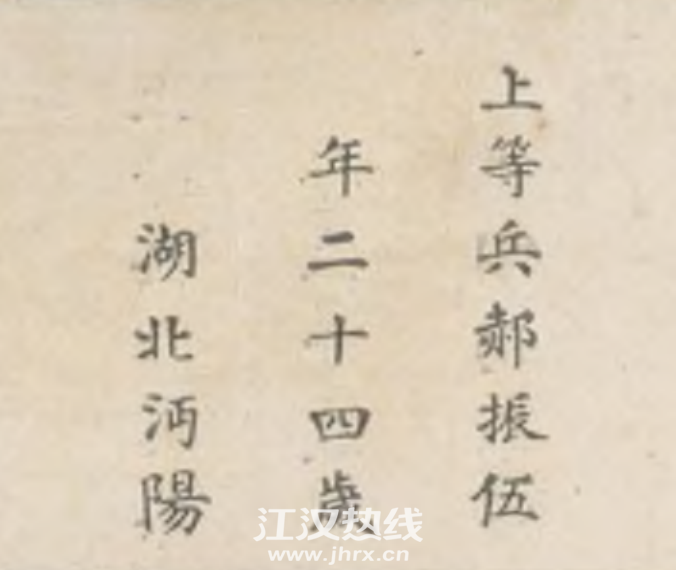 上等兵郝振伍
年二十四歲
湖北沔陽
江汉热线
www.jhrx.cn